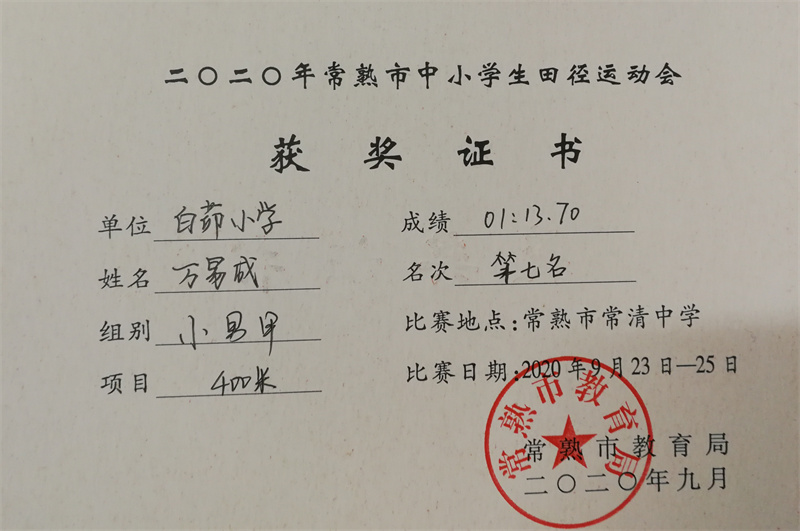 二〇二〇年常熟市中小学生田径运动会
获奖证书
单位 白茆小学
成绩 01:13.70
姓名 万易成
名次 第七名
组别 小男甲
比赛地点:常熟市常清中学
项目 400米
比赛日期:2020年9月23日—25日
常熟市教育局
常熟市教育局
二〇二〇年九月